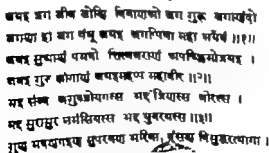 जयइ जग जीव जोणि वियाणओ जग गुरू जगाणंदो
जगणा हो जग बंधू जयइ जगप्पिया महा भयवं ॥१॥
जयइ सुयाणं पभवो तित्थयराणं अपच्छिमोजयइ ।
जयइ गुरु लोगाणं जयइमहप्पा महावीर ॥२॥
भद्द सव्व जगुज्जोयगस्स भद्दं जिणस्स वीरस्स ।
भद्द सुरासुर नमंसियस्स भद्द धुयरयस्स ॥३॥
गुण भवणगहण सुयरयण भरिया, दंसण विसुद्धरत्थागा ।